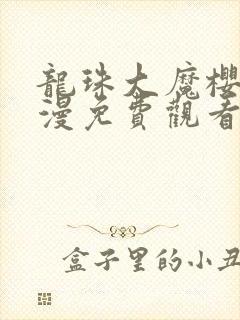 龍珠大魔櫻
漫免費觀看
盒子里的小丑